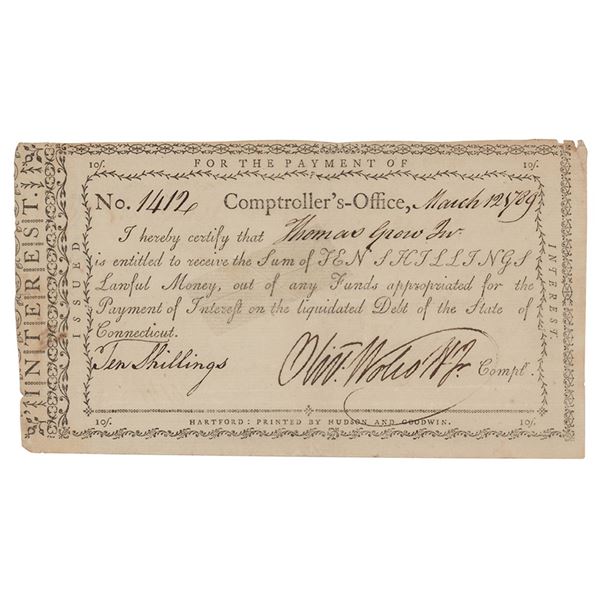 10/. FOR THE PAYMENT OF 10/.
INTEREST.
ISSUED
INTEREST.
No. 1412 Comptroller's-Office, March 12 1789
I hereby certify that Thomas Grow Jur
is entitled to receive the Sum of TEN SHILLINGS
Lawful Money, out of any Funds appropriated for the
Payment of Interest on the liquidated Debt of the State of
Connecticut.
Ten Shillings Olivr. Wolcott Jr. Comptr.
10/. HARTFORD: PRINTED BY HUDSON AND GOODWIN. 10/.